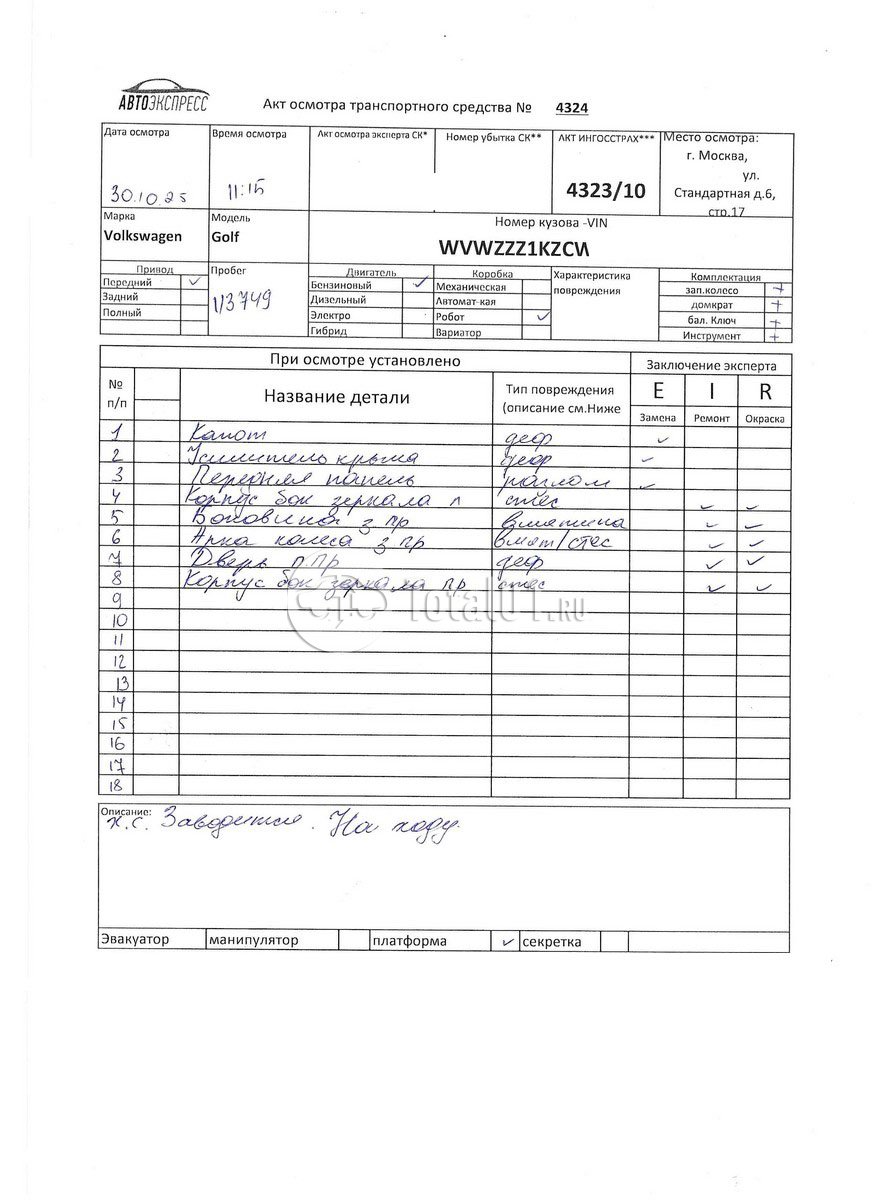 АВТОЭКСПРЕСС
Акт осмотра транспортного средства № 4324
Дата осмотра
30.10.25
Время осмотра
11:15
Акт осмотра эксперта СК*
Номер убытка СК**
АКТ ИНГОССТРАХ***
4323/10
Место осмотра:
г. Москва,
ул.
Стандартная д.6,
стр.17
Марка
Volkswagen
Модель
Golf
Номер кузова -VIN
WVWZZZ1KZCW
Привод
Передний ✓
Задний
Полный
Пробег
113749
Двигатель
Бензиновый ✓
Дизельный
Электро
Гибрид
Коробка
Механическая
Автомат-кая
Робот ✓
Вариатор
Характеристика
повреждения
Комплектация
зап.колесо +
домкрат +
бал. Ключ +
Инструмент +
При осмотре установлено
Заключение эксперта
№ п/п
Название детали
Тип повреждения
(описание см.Ниже
E I R
Замена Ремонт Окраска
1 Капот деф ✓
2 Усилитель крыла деф ✓
3 Передняя панель разлом ✓
4 Корпус бок зеркала л стес ✓ ✓
5 Боковина з пр вмятина ✓ ✓
6 Арка колеса з пр вмят/стес ✓ ✓
7 Дверь п пр деф ✓ ✓
8 Корпус бок зеркала пр стес ✓ ✓
9
10
11
12
13
14
15
16
17
18
Total01.RU
Описание:
х.с. Заводится. На ходу.
Эвакуатор манипулятор платформа ✓ секретка